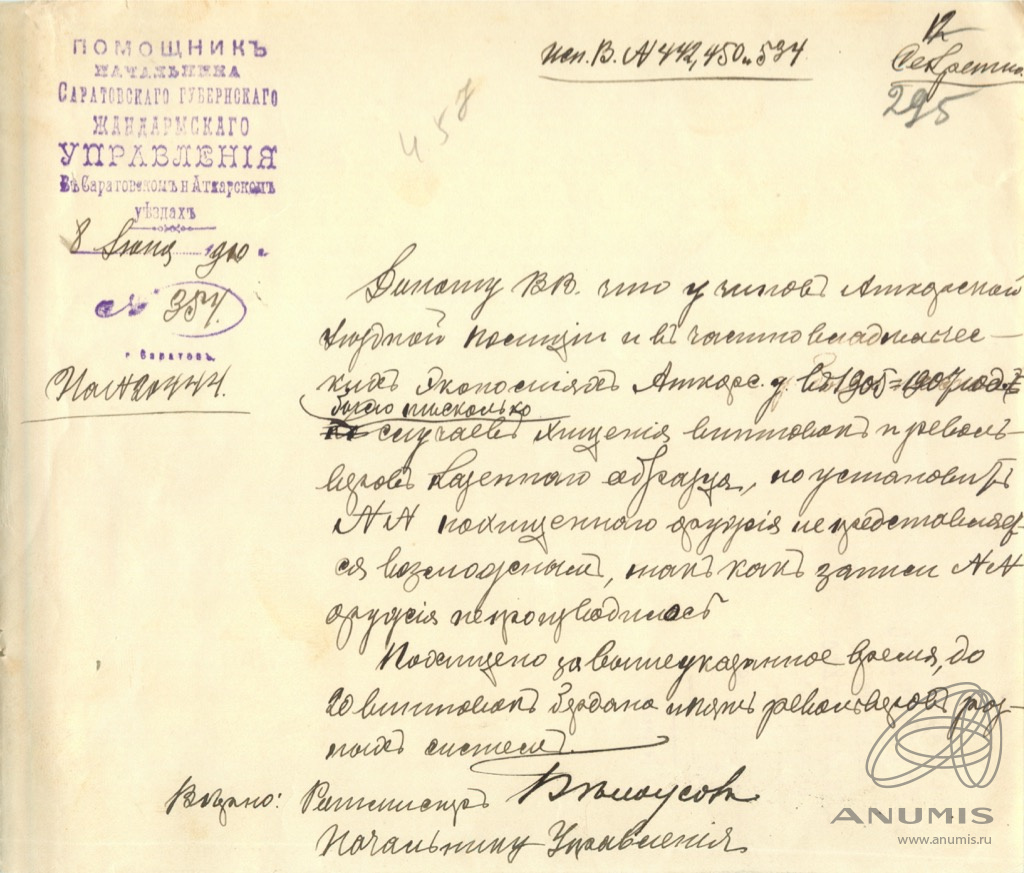 ПОМОЩНИКЪ
НАЧАЛЬНИКА
САРАТОВСКАГО ГУБЕРНСКАГО
ЖАНДАРМСКАГО
УПРАВЛЕНІЯ
Въ Саратовскомъ и Аткарскомъ
уѣздахъ
8 Іюня 1910 г.
№ 357.
г. Саратовъ.
На № 20444.
Исп. В. № 442, 450 и 534
12
Секретно.
295
457
Доношу ВВ. что у чиновъ Аткарской
уѣздной полиціи и въ частновладѣльчес-
кихъ Экономіяхъ Аткарс. у. въ 1905-1907 годахъ
было нѣсколько
случаевъ хищенія винтовокъ и револь-
веровъ казеннаго образца, но установить
№№ похищеннаго оружія не представляет-
ся возможнымъ, такъ какъ записи №№
оружія не производилось
Похищено за вышеуказанное время, до
20 винтовокъ Бердана и пять револьверовъ раз-
ныхъ системъ.
Вѣрно: Ротмистръ Бѣлоусовъ
Начальнику Управленія.
ANUMIS
www.anumis.ru